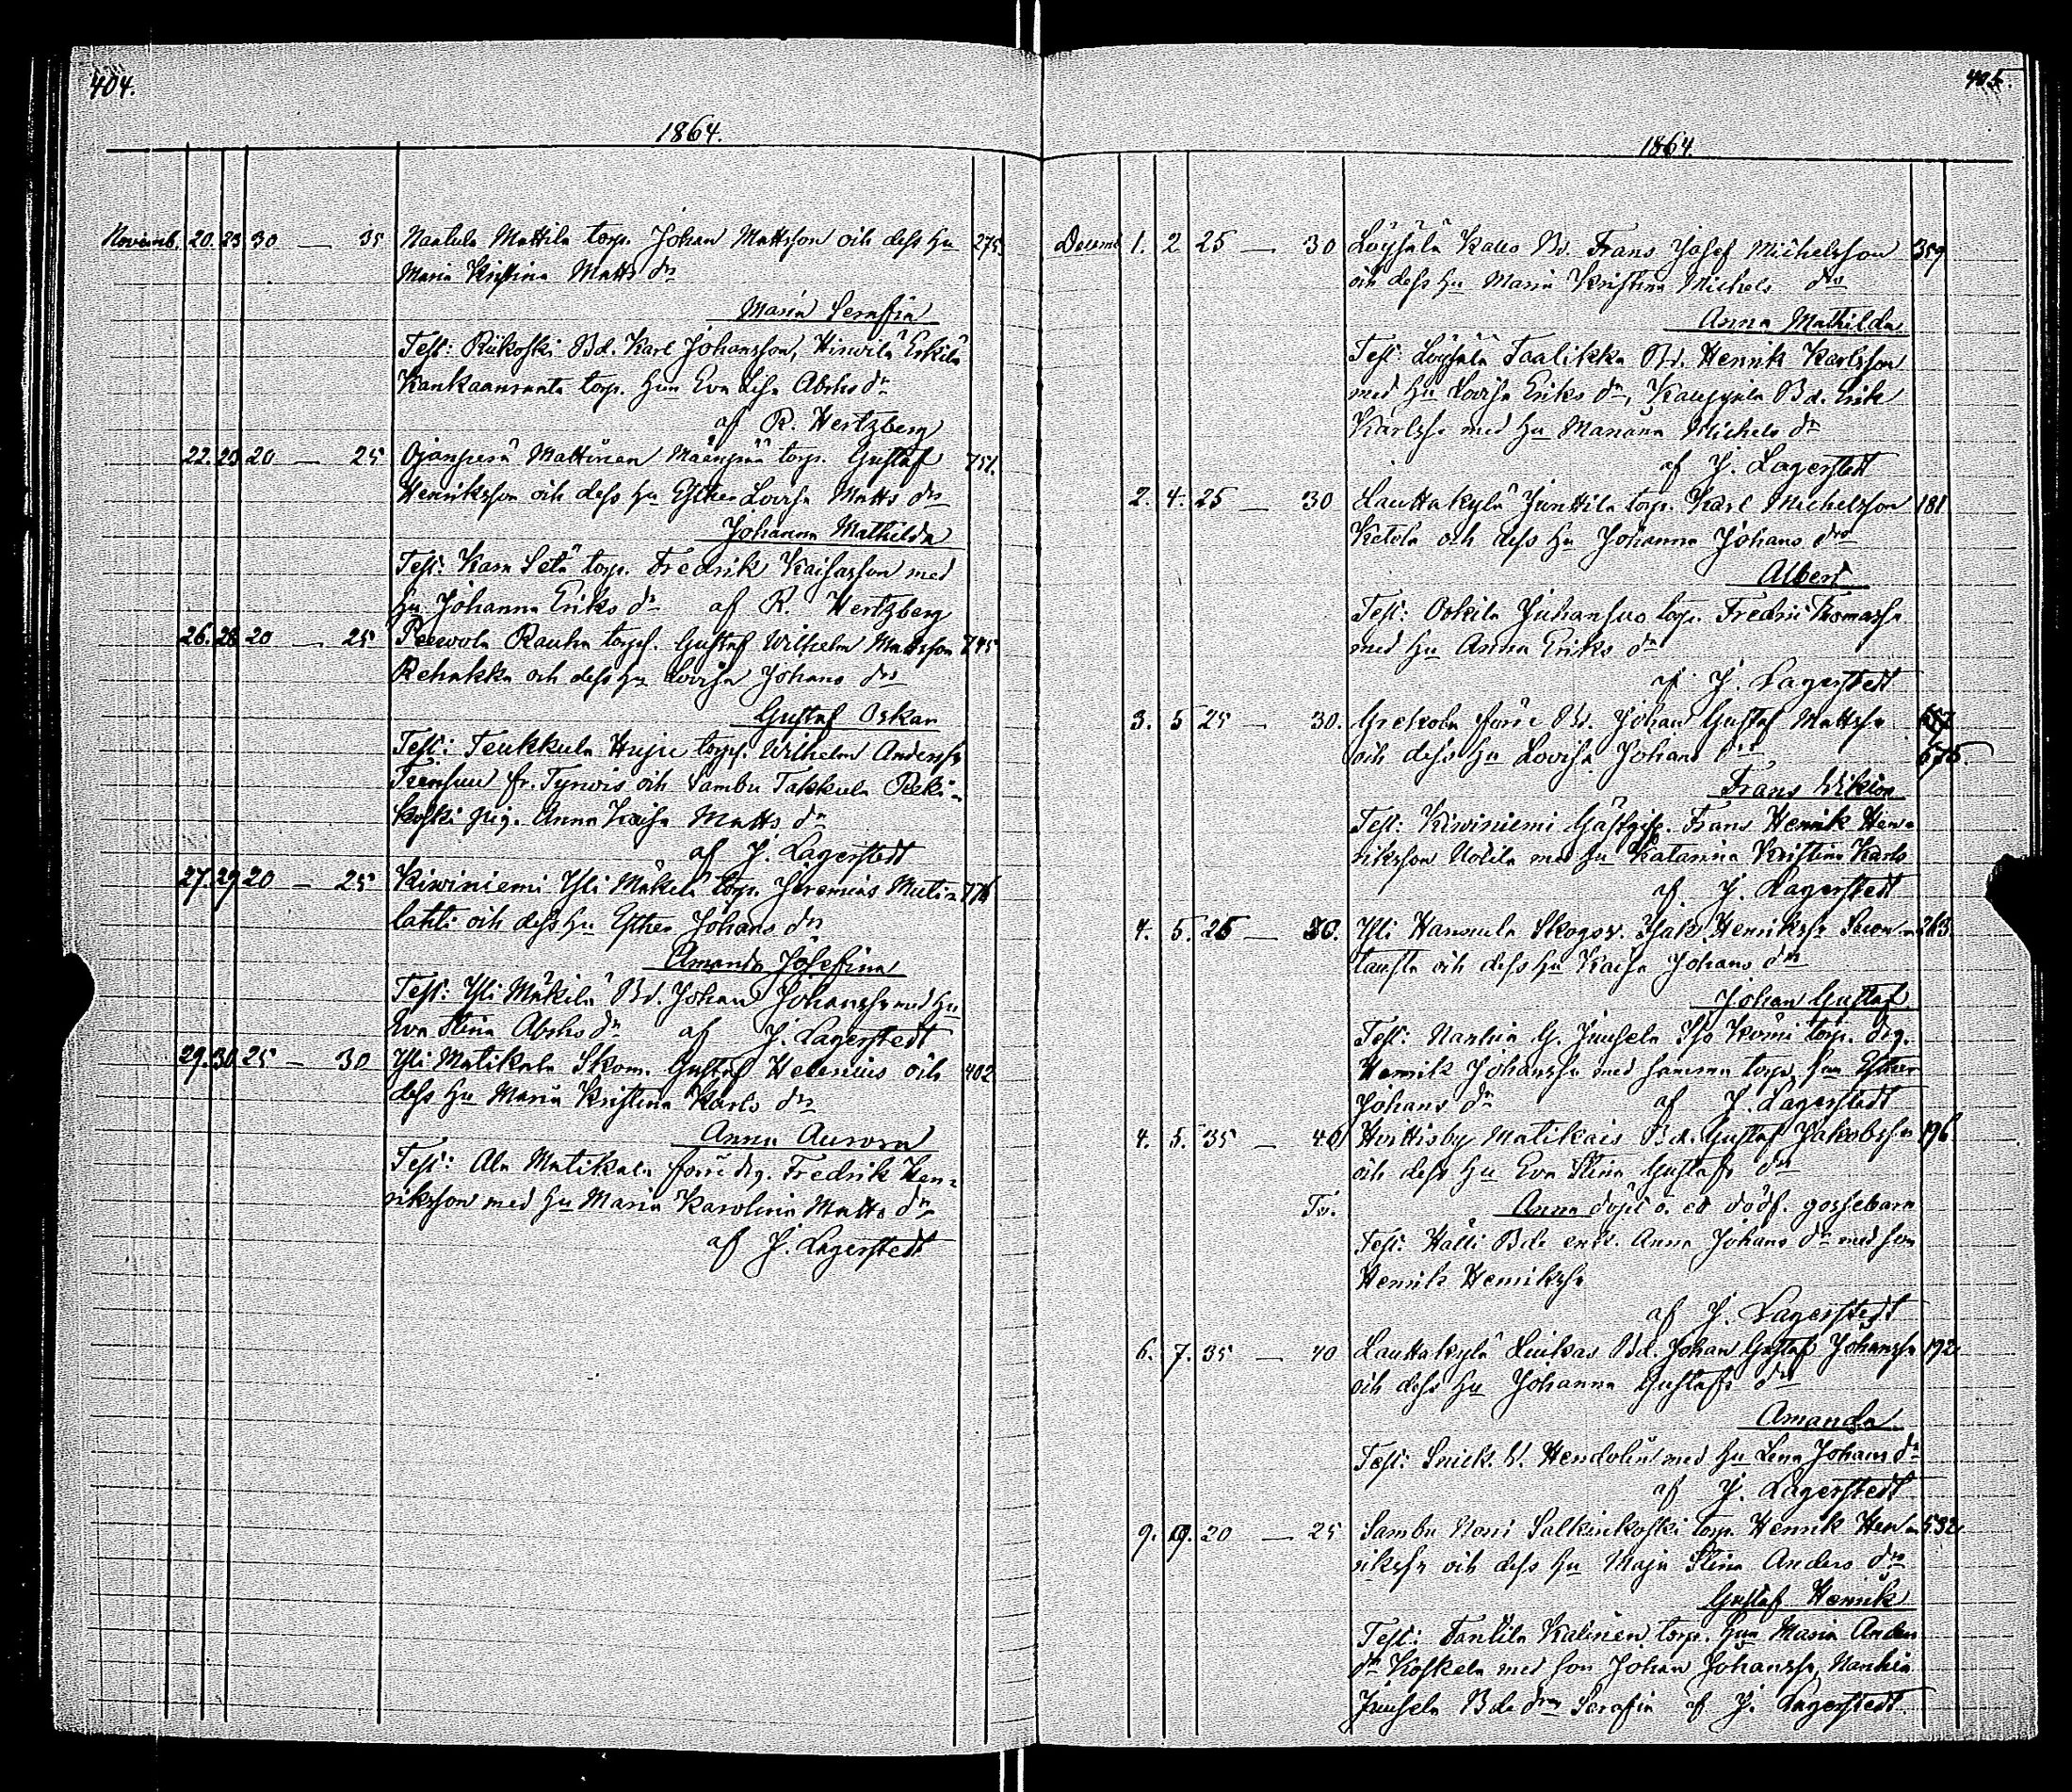 404.
1864.
Novemb. 20. 23 30 — 35 Naatula Mattila torp. Johan Mattsson och dess hu 275.
Maria Kristina Matts dr
Maria Serafia
Test: Riikoski Bd. Karl Johansson, Hirvilä Erkilä
Kankaanranta torp. hun Eva Lisa Abrhs dr
af R. Hertzberg
22. 23 20 — 25 Ojanperä Mattinen Mäenpää torp. Gustaf 751.
Henriksson och dess hu Esther Lovisa Matts dr
Johanna Mathilda
Test: Karn Setä torp. Fredrik Kaisasson med
hu Johanna Eriks dr af R. Hertzberg
26. 28 20 — 25 Peewola Rauha torp. Gustaf Wilhelm Mattsson 745
Rehakka och dess hu Lovisa Johans dr
Gustaf Oskar
Test: Teukkula Huju torp. Wilhelm Anderss.
fr. Tyrwis och Sambu Takkula Reki-
koski pig. Anna Kaisa Matts dr
af J. Lagerstedt
27. 29 20 — 25 Kiwiniemi Yli Mäkelä torp. Jeremias Muti- 776
lahti och dess hu Esther Johans dr
Amanda Josefina
Test: Yli Mäkilä Bd. Johan Johanss. med hu
Eva Stina Abrhs dr af J. Lagerstedt
29. 30 25 — 30 Yli Matikala Skom. Gustaf Helenius och 402
dess hu Maria Kristina Karls dr
Anna Aurora
Test: Ala Matikala förre drg. Fredrik Hen-
riksson med hu Maria Karolina Matts dr
af J. Lagerstedt
405.
1864.
Decemb 1. 2 25 — 30 Löysälä Kauo Bd. Frans Josef Michelsson 359
och dess hu Maria Kristina Michels dr
Anna Mathilda
Test Löysälä Taalikka Bd. Henrik Karlsson
med hu Lovisa Eriks dr, Kauppila Bd. Erik
Karlss. med hu Mariana Michels dr
af J. Lagerstedt
2. 4. 25 — 30 Lauttakylä Junttila torp. Karl Michelsson 181
Ketola och dess hu Johanna Johans dr
Albert
Test: Oskila Juhansuo torp. Fredric Thomass.
med hu Anna Eriks dr
af J. Lagerstedt
3. 5 25 — 30. förre Bd. Johan Gustaf Mattss.
och dess hu Lovisa Johans dr 675.
Frans Wiktor
Test: Kiwiniemi Gästgifv. Frans Henrik Hen-
riksson Uotila med hu Katarina Kristina Karls
af J. Lagerstedt
4. 5. 25 — 30. Yli Hannula Skogsv. Isak Henrikss. Savon- 263.
tausta och dess hu Kaisa Johans dr
Johan Gustaf
Test: Nanhia G. Juusela Iso Körni torp. drg.
Henrik Johanss. med samma torps hun Esther
Johans dr af J. Lagerstedt
4. 5. 35 — 40 Huittisby Matikais Bd. Gustaf Jakobss. 196
och dess hu Eva Stina Gustafs dr
Tv. Anna döpt o. ett dödf. gossebarn
Test: Hälli Bde enk. Anna Johans dr med son
Henrik Henrikss.
af J. Lagerstedt
6. 7. 35 — 40 Lauttakylä Liukas Bd. Johan Gustaf Johanss. 192
och dess hu Johanna Gustafs dr
Amanda
Test: Snick. W. Hendolin med hu Lena Johans dr
af J. Lagerstedt
9. 9. 20 — 25 Sambu Norri Salkinkoski torp. Henrik Hen- 532
rikss. och dess hu Maja Stina Anders dr
Gustaf Henrik
Test: Tantila Kalinen torp. hun Maria Anders
dr Koskela med son Johan Johanss., Nanhia
Juusela Bde dr Serafia af J. Lagerstedt.